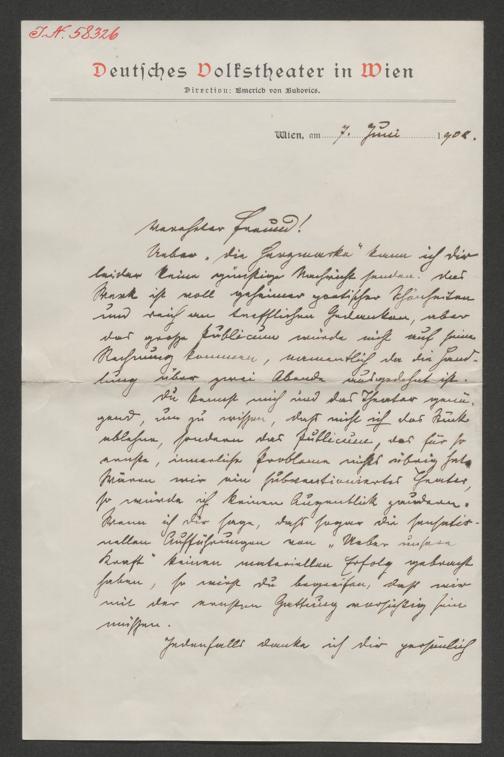 J.N. 58326
Deutsches Volkstheater in Wien
Direction: Emerich von Bukovics.
Wien, am 7. Juni 1902.
Verehrter Freund!
Ueber „die Herzmarke“ kann ich dir
leider keine günstige Nachricht senden. Das
Werk ist voll geheimer poetischer Schönheiten
und reich an trefflichen Gedanken, aber
das große Publicum würde nicht auf seine
Rechnung kommen, namentlich da die Hand-
lung über zwei Abende ausgedehnt ist.
Du kennst mich und das Theater genü-
gend, um zu wissen, daß nicht ich das Stück
ablehne, sondern das Publicum, das für so
ernste, innerliche Probleme nichts übrig hat.
Wären wir ein subventioniertes Theater,
so würde ich keinen Augenblik zaudern.
Wenn ich dir sage, daß sogar die sensatio-
nellen Aufführungen von „Ueber unsere
Kraft“ keinen materiellen Erfolg gebracht
haben, so wirst du begreifen, daß wir
mit der ernsten Gattung vorsichtig sein
müssen.
Jedenfalls danke ich dir persönlich